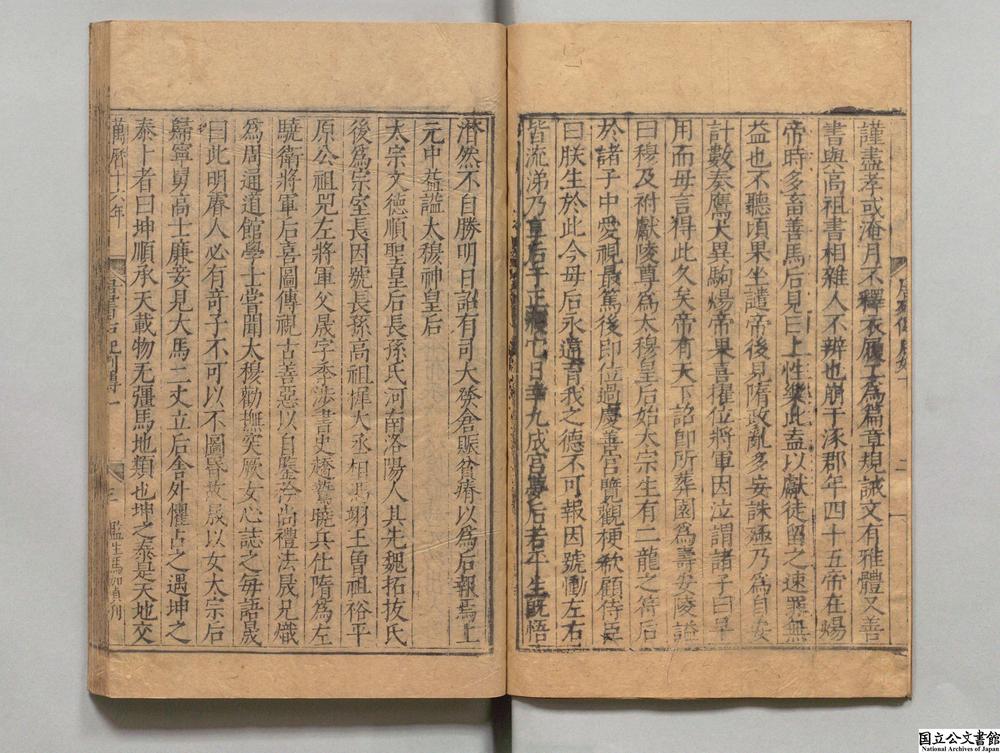 謹盡孝或淹月不釋衣履工爲篇章規誡文有雅體又善
書與高祖書相雜人不辨也崩于涿郡年四十五帝在煬
帝時多畜善馬后見曰上性樂此盍以獻徒留之速罪無
益也不聽頃果坐譴帝後見隋政亂多妄誅殛乃爲自安
計數奏鷹犬異駒煬帝果喜擢位將軍因泣謂諸子曰早
用而母言得此久矣帝有天下詔即所葬園爲壽安陵謚
曰穆及祔獻陵尊爲太穆皇后始太宗生有二龍之符后
於諸子中愛視最篤後即位過慶善宮覽觀梗欷顧侍臣
曰朕生於此今母后永違育我之德不可報因號慟左右
皆流涕乃皇后于正寢它日幸九成宮夢后若平生既悟
潸然不自勝明日詔有司大發倉賑貧瘠以爲后報焉上
元中益謚太穆神皇后
太宗文德順聖皇后長孫氏河南洛陽人其先魏拓拔氏
後爲宗室長因號長孫高祖稚大丞相馮翊王曾祖裕平
原公祖兕左將軍父晟字季涉書史趫鷙曉兵仕隋爲左
驍衛將軍后喜圖傳視古善惡以自鑒矜尚禮法晟兄熾
爲周通道館學士嘗聞太穆勸撫突厥女心誌之每語晟
曰此明睿人必有奇子不可以不圖昬故晟以女太宗后
歸寧舅高士廉妾見大馬二丈立后舍外懼占之遇坤之
泰卜者曰坤順承天載物无彊馬地類也坤之泰是天地交
萬曆十六年
三
監生馬
刊
国立公文書館
National Archives of Japan